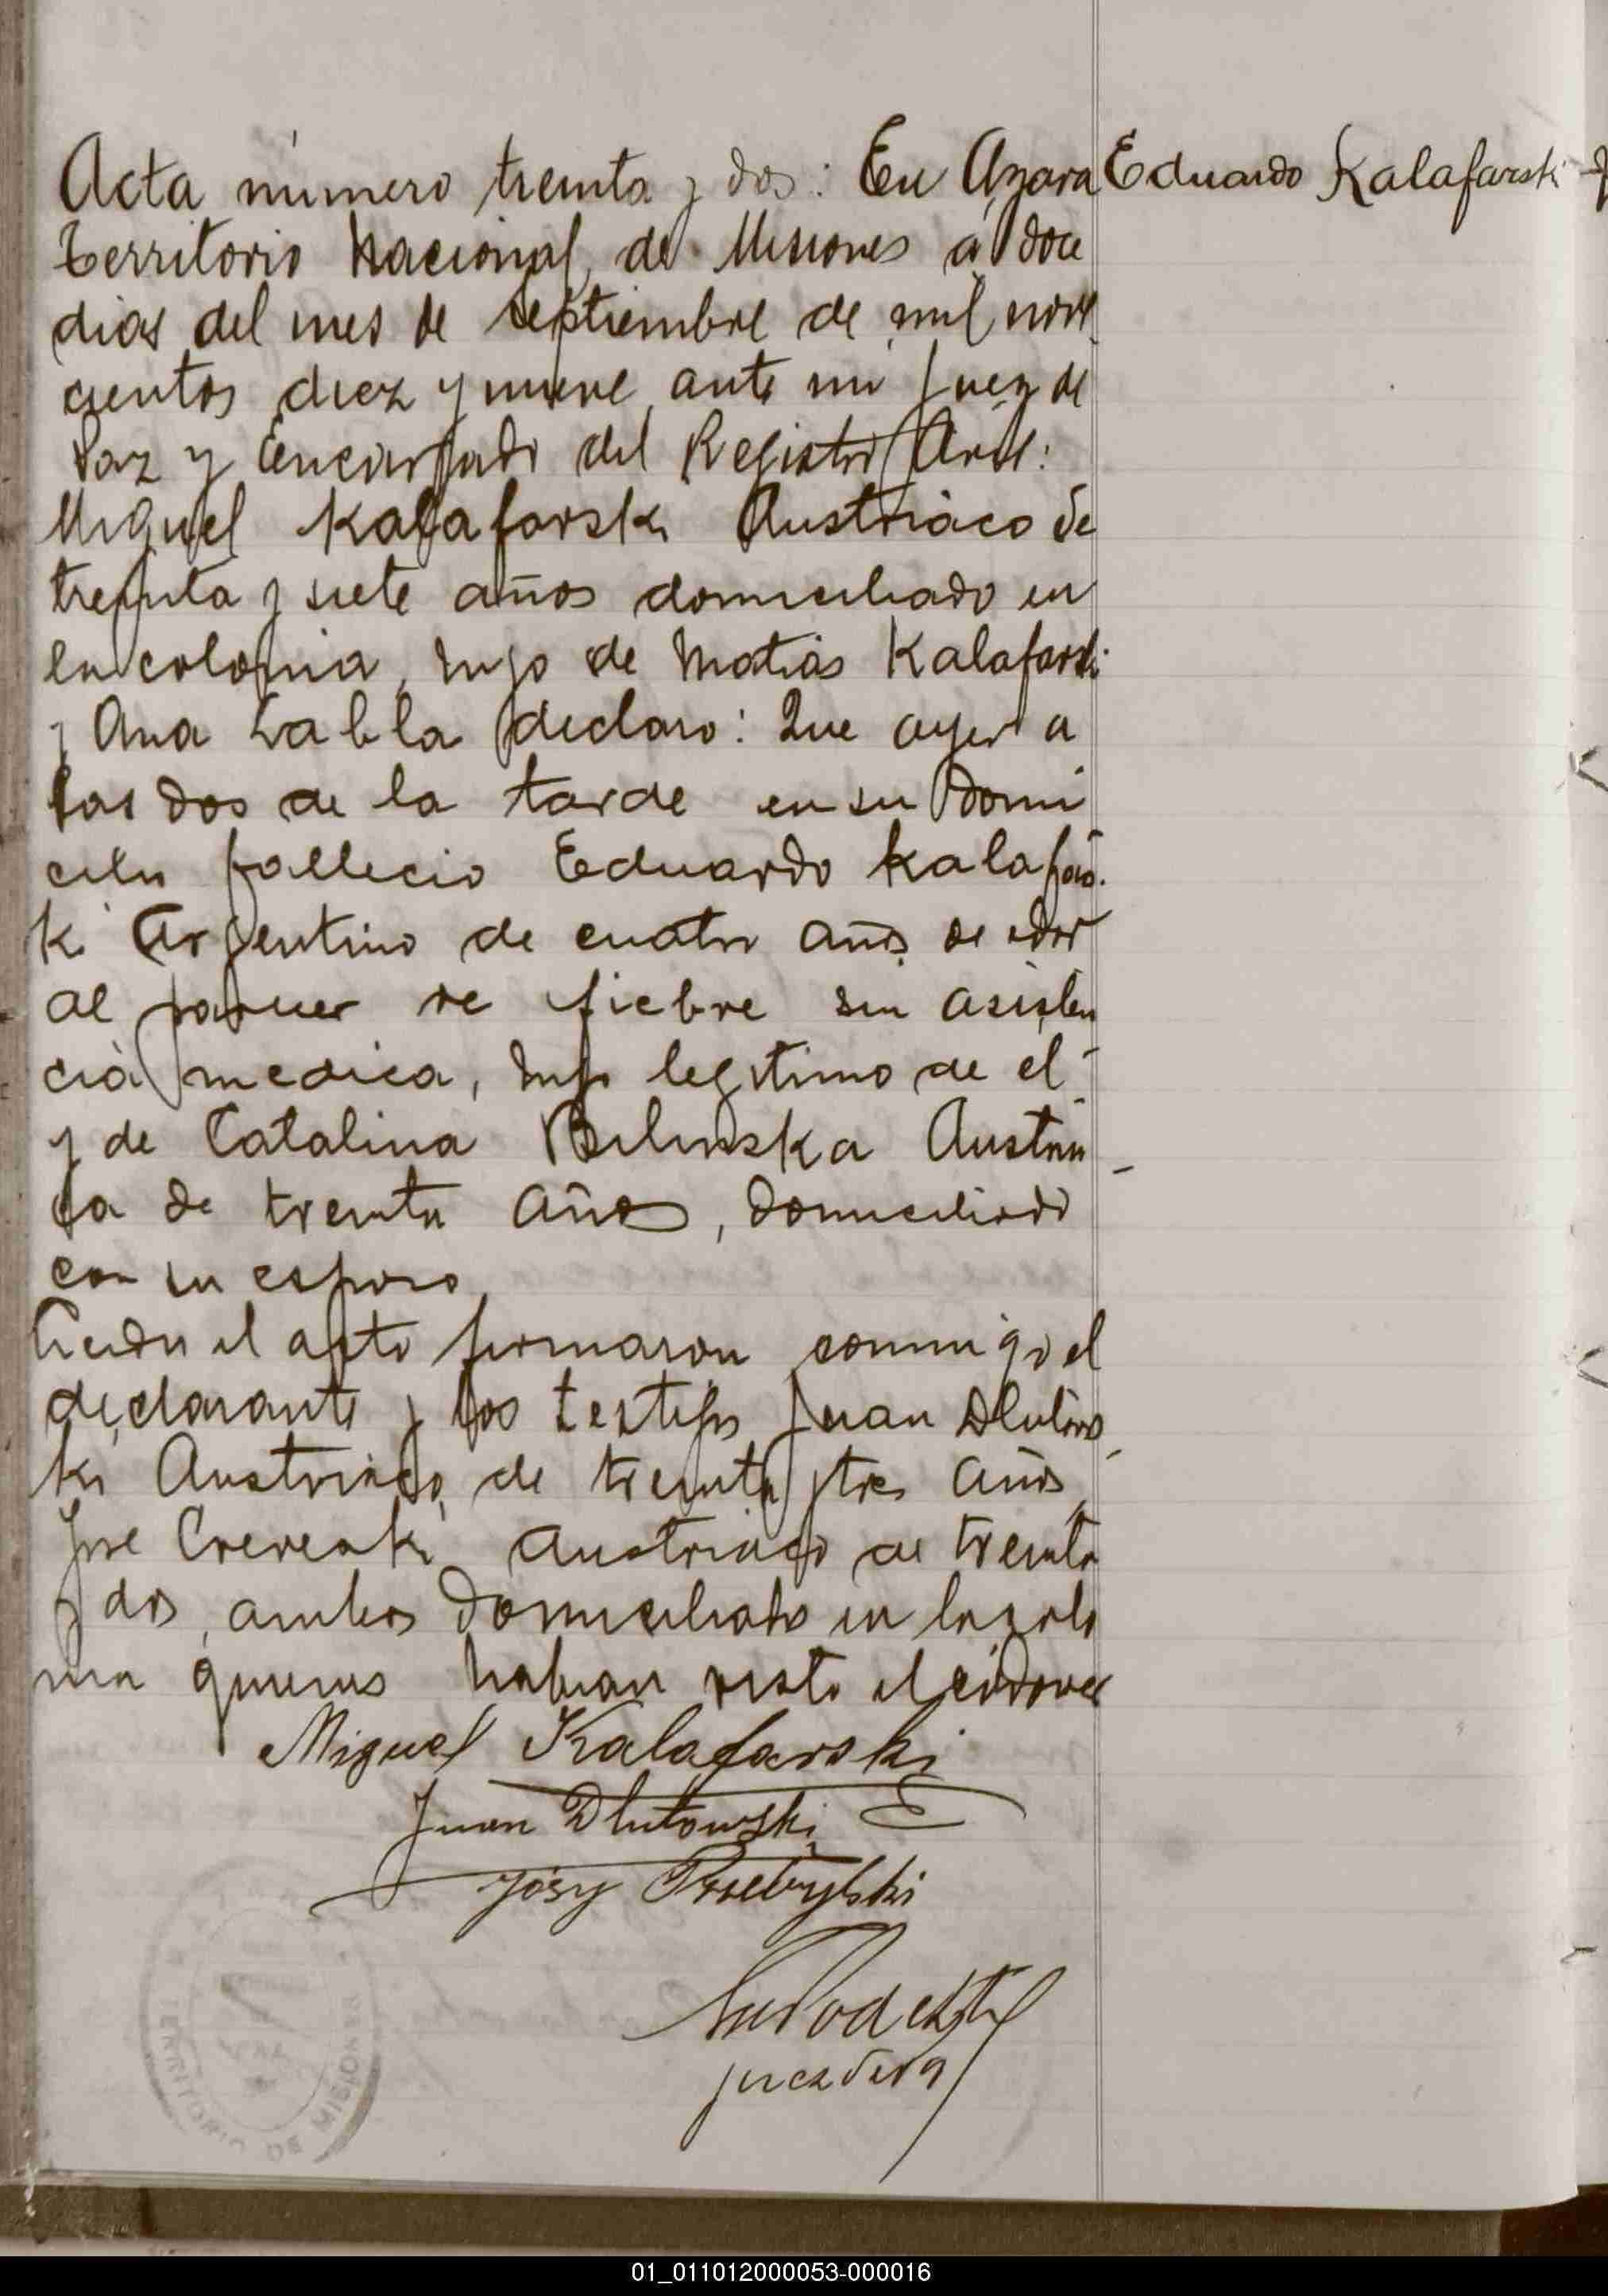 Acta número treinta y dos: En Azara
Eduardo Kalafarski
territorio Nacional de Misiones á doce
dias del mes de septiembre de mil nove
cientos diez y nueve, ante mi Juez de
Paz y Encargado del Registro Civil:
Miguel Kalafarski Austriaco de
treinta y siete años domiciliado en
la colonia, hijo de Matias Kalafarski
y Ana declaro: Que ayer a
las dos de la tarde en su domi
cilio fallecio Eduardo Kalafars
ki Argentino de cuatro años de edad
al parecer de fiebre sin asisten
cia medica, hijo legitimo de el
y de Catalina Bilinska Austria
ca de treinta años, domiciliado
con su esposo
Leida el acta firmaron conmigo el
declarante y los testigos Juan
ki Austriaco de treinta y tres años
José austriaco de treinta
y dos, ambos domiciliados en la colo
nia quienes habian visto el cádaver
Miguel Kalafarski
Juan Dlutowski
Przebylski
Podestá
juez de Pa
TERRITORIO DE MISIONES
01_011012000053-000016